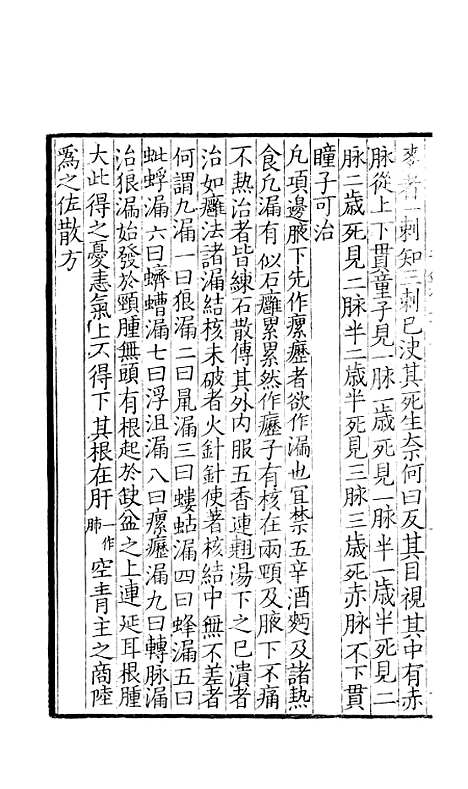 麥者一刺知三刺已決其死生柰何曰反其目視其中有赤
脉從上下貫童子見一脉一歳死見一脉半一歳半死見二
脉二歳死見二脉半二歳半死見三脉三歳死赤脉不下貫
瞳子可治
凡項邊腋下先作瘰癧者欲作漏也宜禁五辛酒麪及諸熱
食凡漏有似石癰累累然作癧子有核在兩頸及腋下不痛
不熱治者皆練石散傅其外内服五香連翹湯下之已潰者
治如癰法諸漏結核未破者火針針使著核結中無不差者
何謂九漏一曰狼漏二曰鼠漏三曰螻蛄漏四曰蜂漏五曰
蚍蜉漏六曰蠐螬漏七曰浮沮漏八曰瘰癧漏九曰轉脉漏
治狼漏始發於頸腫無頭有根起於缺盆之上連延耳根腫
大此得之憂恚氣上不得下其根在肝一作肺空青主之商陸
爲之佐散方